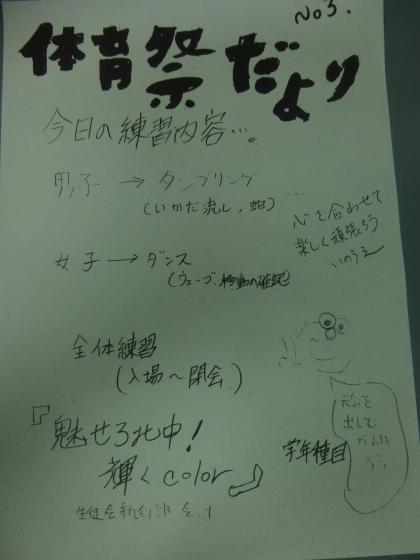 No3.
体育祭だより
今日の練習内容…。
男子 → タンブリング
(いかだ流し, 蛇) …
心を合わせて
楽しく頑張ろう
いのうえ
女子 → ダンス
(ウェーブ, 移動の確認)
全体練習
(入場〜閉会)
『魅せろ北中!
輝くcolor』
学年種目
元気を
出して
がんば
生徒会執行部